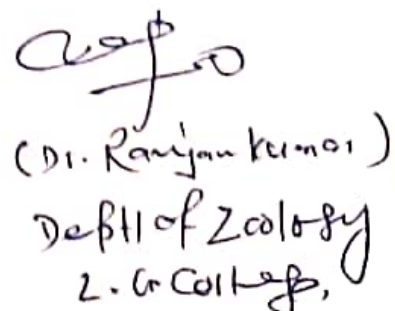 (Dr. Ranjan Kumar)
Deptt of Zoology
L. G College,